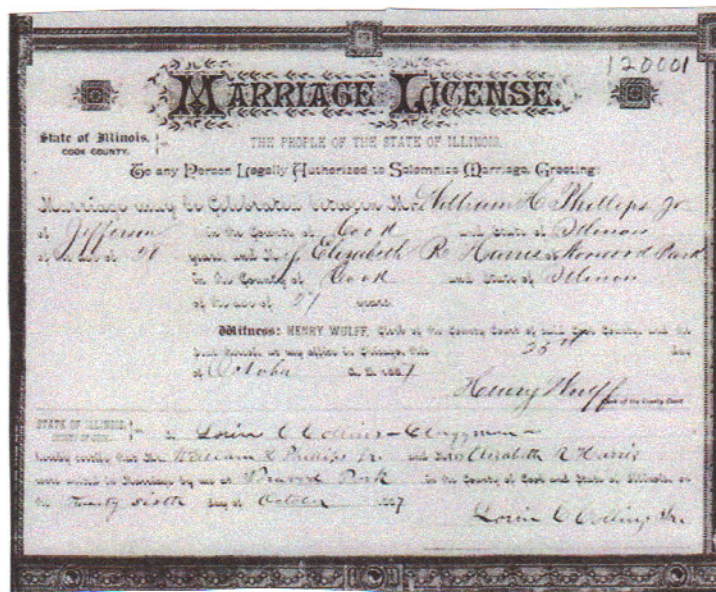 120001
MARRIAGE LICENSE.
State of Illinois,
COOK COUNTY.
THE PEOPLE OF THE STATE OF ILLINOIS.
To any Person Legally Authorized to Solemnize Marriage, Greeting:
Marriage may be Celebrated between Mr. William H. Phillips Jr
of Jefferson in the County of Cook and State of Illinois
of the age of years and Elizabeth R Harris of Norwood Park
in the County of Cook and State of Illinois
of the age of 27 years
Witness: HENRY WULFF, Clerk of the County Court of said Cook County, and the
Seal thereof, at my office in Chicago, this 25th day
of October A. D. 1887
Henry Wulff
Clerk of the County Court
STATE OF ILLINOIS,
COUNTY OF COOK
I, Lorin C Collins - Clergyman -
hereby certify that Mr. William H Phillips Jr. and Elizabeth R Harris
were united in Marriage by me at Norwood Park in the County of Cook and State of Illinois, on
the Twenty sixth day of October 1887
Lorin C Collins Sr.